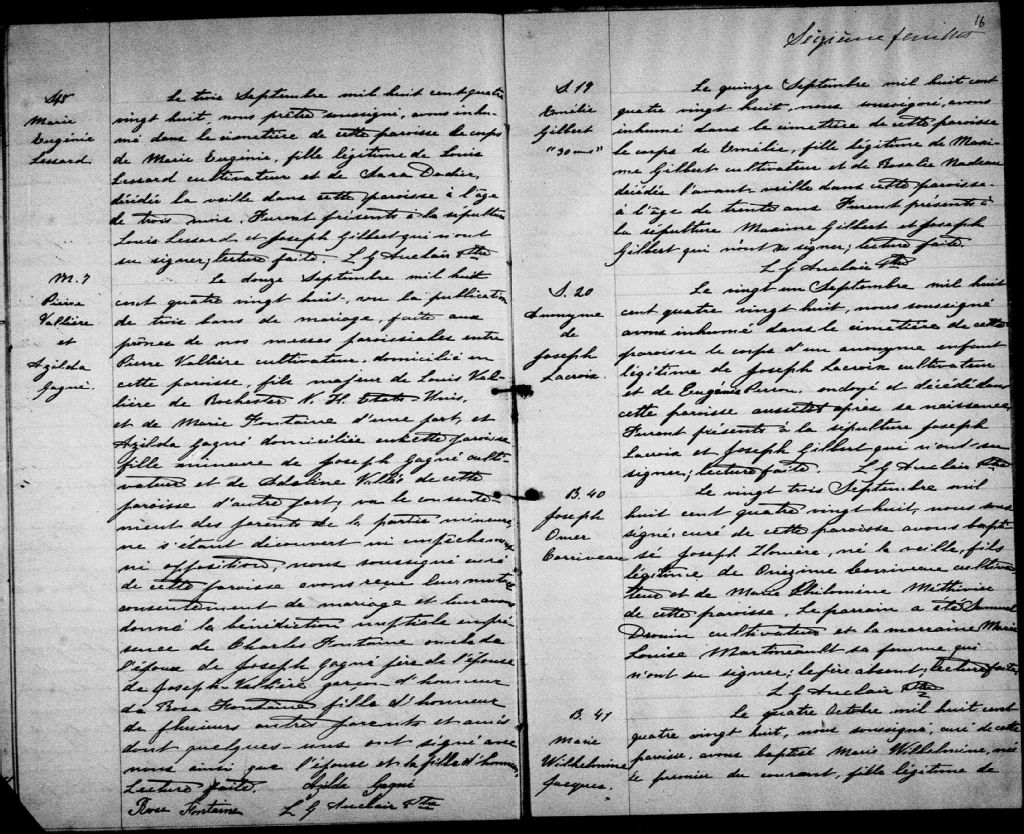 S 18
Marie
Eugénie
Lessard
Le trois Septembre mil huit cent quatre
vingt huit, nous prêtre soussigné, avons inhu-
mé dans le cimetière de cette paroisse le corps
de Marie Eugénie, fille légitime de Louis
Lessard cultivateur et de Sara Dodier,
décédée la veille dans cette paroisse à l'âge
de trois mois. Furent présents à la sépulture
Louis Lessard et Joseph Gilbert qui n'ont
su signer; lecture faite. L G Auclair Ptre
M. 7
Pierre
Vallière
et
Azilda
Gagné.
Le douze Septembre mil huit
cent quatre vingt huit, vu la publication
de trois bans de mariage, faite aux
prônes de nos messes paroissiales entre
Pierre Vallière cultivateur, domicilié en
cette paroisse, fils majeur de Louis Val-
lière de Rochester N. H. Etats Unis,
et de Marie Fontaine d'une part, et
Azilda Gagné domiciliée en cette paroisse
fille mineure de Joseph Gagné culti-
vateur et de Adeline Vallée de cette
paroisse d'autre part, vu le consente-
ment des parents de la partie mineure,
ne s'étant découvert ni empêchement
ni opposition, nous soussigné curé
de cette paroisse avons reçu leur mutuel
consentement de mariage et leur avons
donné la bénédiction nuptiale en pré-
sence de Charles Fontaine oncle de
l'époux de Joseph Gagné père de l'épouse
de Joseph Vallière garçon d'honneur
de Rose Fontaine fille d'honneur
de plusieurs autres parents et amis
dont quelques-uns ont signé avec
nous ainsi que l'épouse et la fille d'honneur,
Lecture faite. Azilda Gagné
Rose Fontaine L G Auclair Ptre
16
Sézième feuillet
S. 19
Emélie
Gilbert
"30 ans"
Le quinze Septembre mil huit cent
quatre vingt huit, nous soussigné, avons
inhumé dans le cimetière de cette paroisse
le corps de Emélie, fille légitime de Maxi-
me Gilbert cultivateur et de Rosalie Nadeau
décédée l'avant-veille dans cette paroisse
à l'âge de trente ans Furent présents à
la sépulture Maxime Gilbert et Joseph
Gilbert qui n'ont su signer; lecture faite.
L G Auclair Ptre
S. 20
Anonyme
de
Joseph
Lacroix.
Le vingt un Septembre mil huit
cent quatre vingt huit, nous soussigné
avons inhumé dans le cimetière de cette
paroisse le corps d'un anonyme enfant
légitime de Joseph Lacroix cultivateur
et de Eugénie Perron, ondoyé et décédé dans
cette paroisse aussitôt après sa naissance,
Furent présents à la sépulture Joseph
Lacroix et Joseph Gilbert qui n'ont su
signer; lecture faite. L G Auclair Ptre
B. 40
Joseph
Omer
Corriveau
Le vingt trois Septembre mil
huit cent quatre vingt huit, nous sous-
signé, curé de cette paroisse avons bapti-
sé Joseph né la veille, fils
légitime de Onézime Corriveau cultiva-
teur et de Marie Philomine Méthivier
de cette paroisse. Le parrain a été Samuel
Drouin cultivateur et la marraine Marie
Louise Martineault sa femme qui
n'ont su signer; le père absent; lecture faite,
L G Auclair Ptre
B. 41
Marie
Wilhelmine
Jacques.
Le quatre Octobre mil huit cent
quatre vingt huit, nous soussigné, curé de cette
paroisse, avons baptisé Marie Wilhelmine, née
le premier du courant, fille légitime de